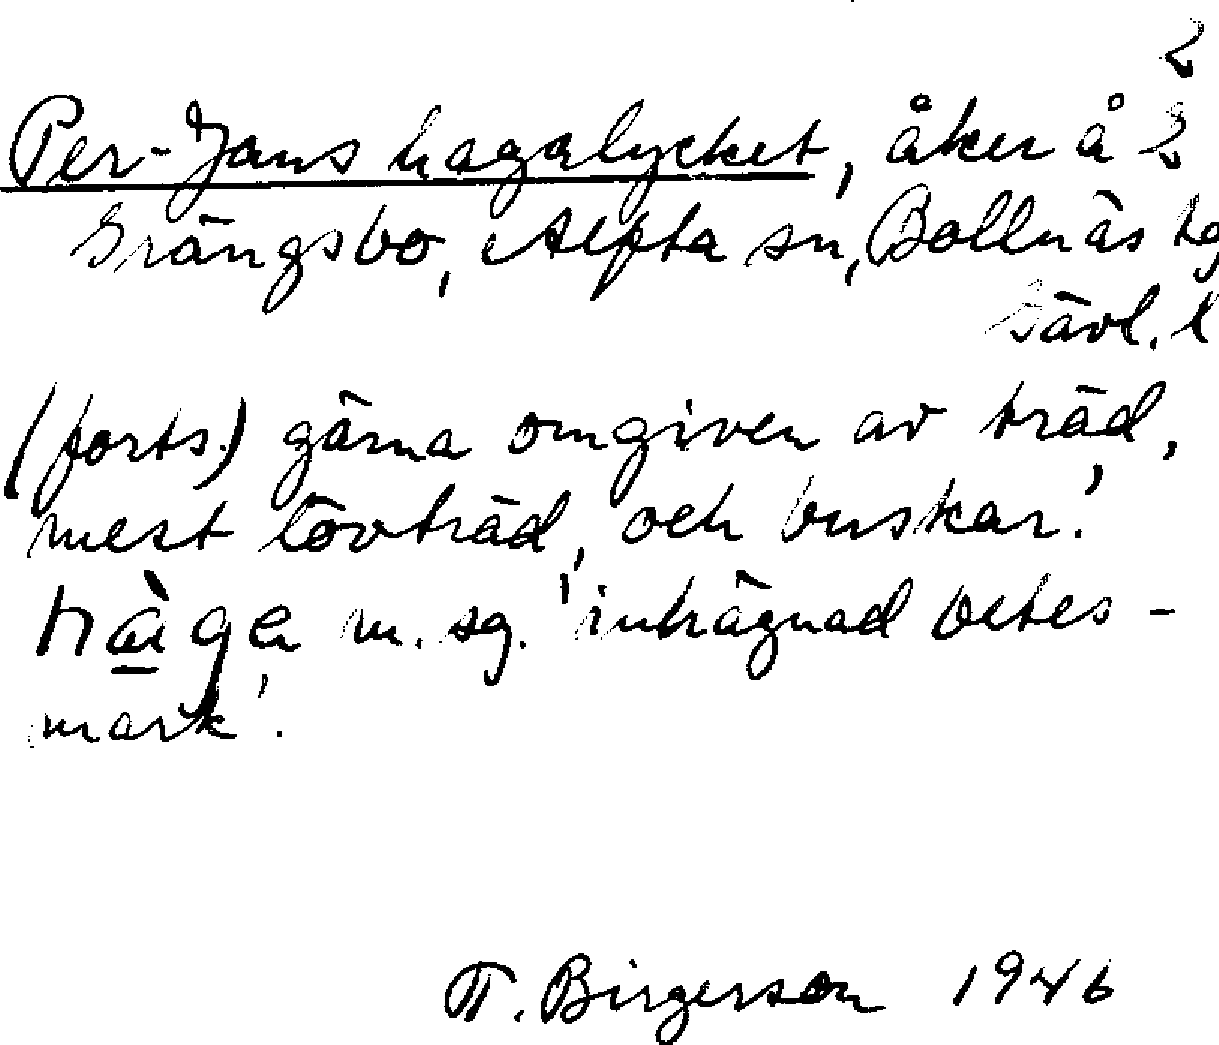 2
Per-Jans hagalycket, åker å 2
Grängsbo, Alfta sn, Bollnäs tg
Gävl. l
(forts.) gärna omgiven av träd,
mest lövträd, och buskar.'
hàgen m. sg. 'inhägnad betes-
mark'.
T. Birgerson 1946